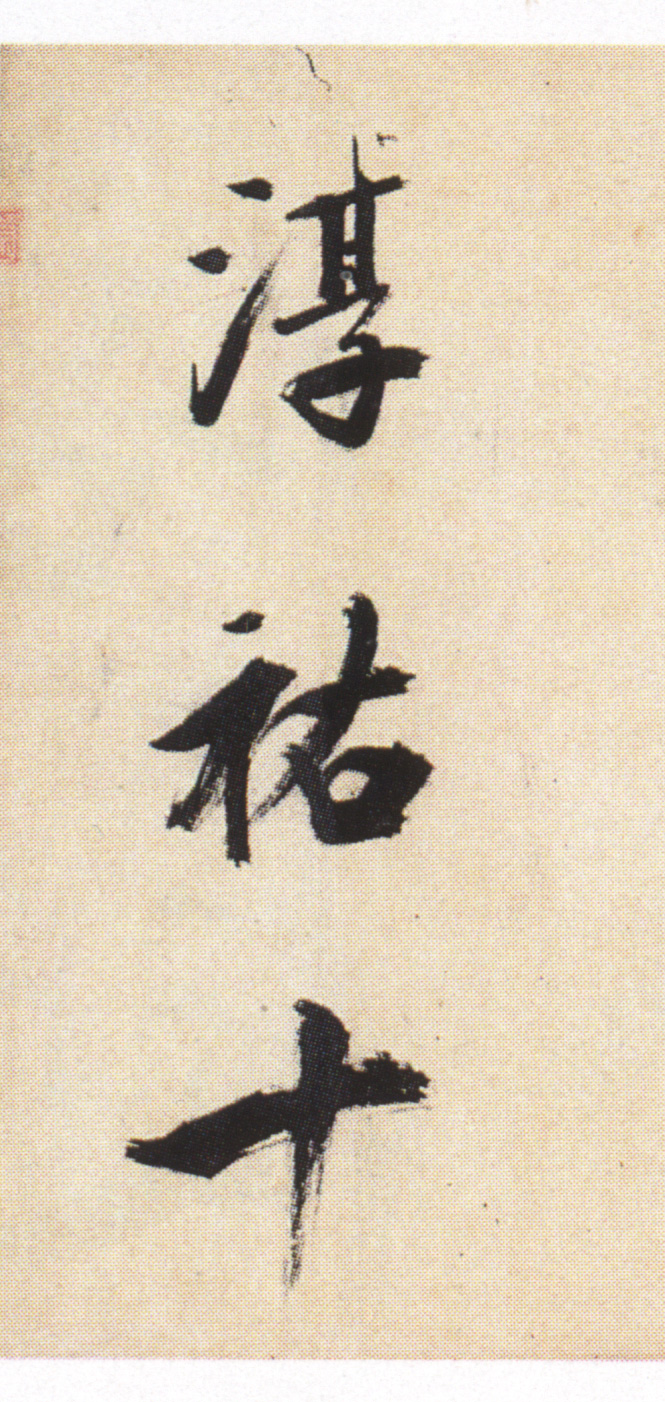 淳祐十